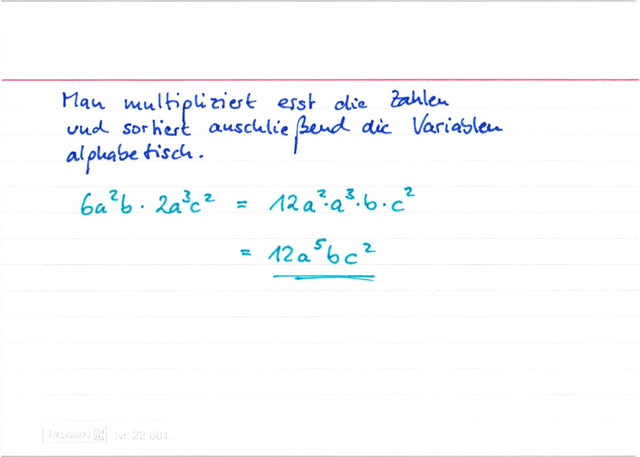 Man multipliziert erst die Zahlen
und sortiert anschließend die Variablen
alphabetisch.
6a²b · 2a³c² = 12a²·a³·b·c²
= 12a⁵bc²
Nr. 22 601..